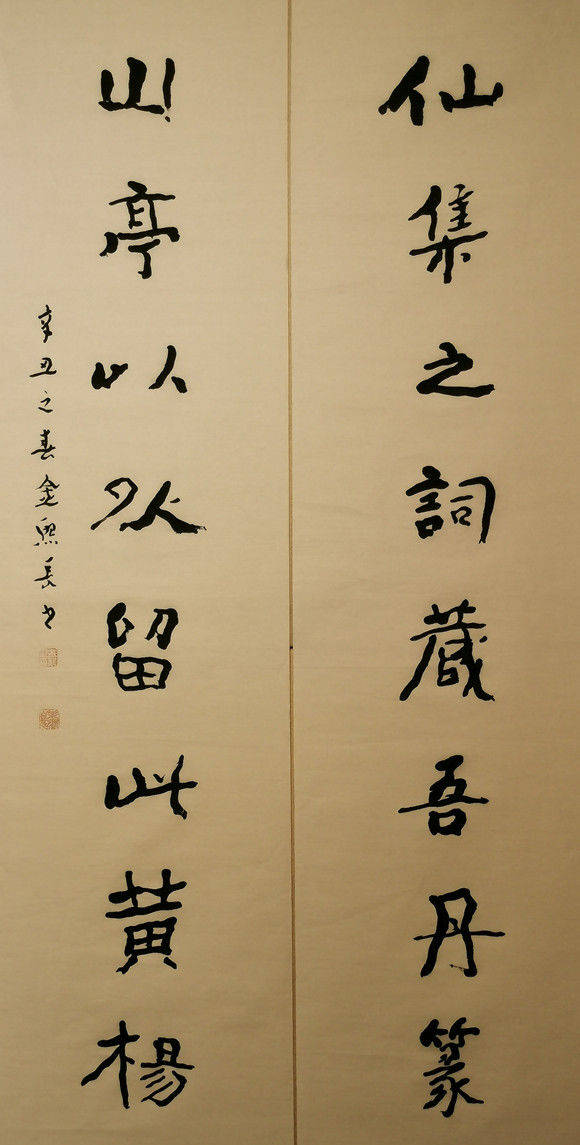 仙集之詞藏吾丹篆
山亭以外留此黄楊
辛丑之春金熙長书